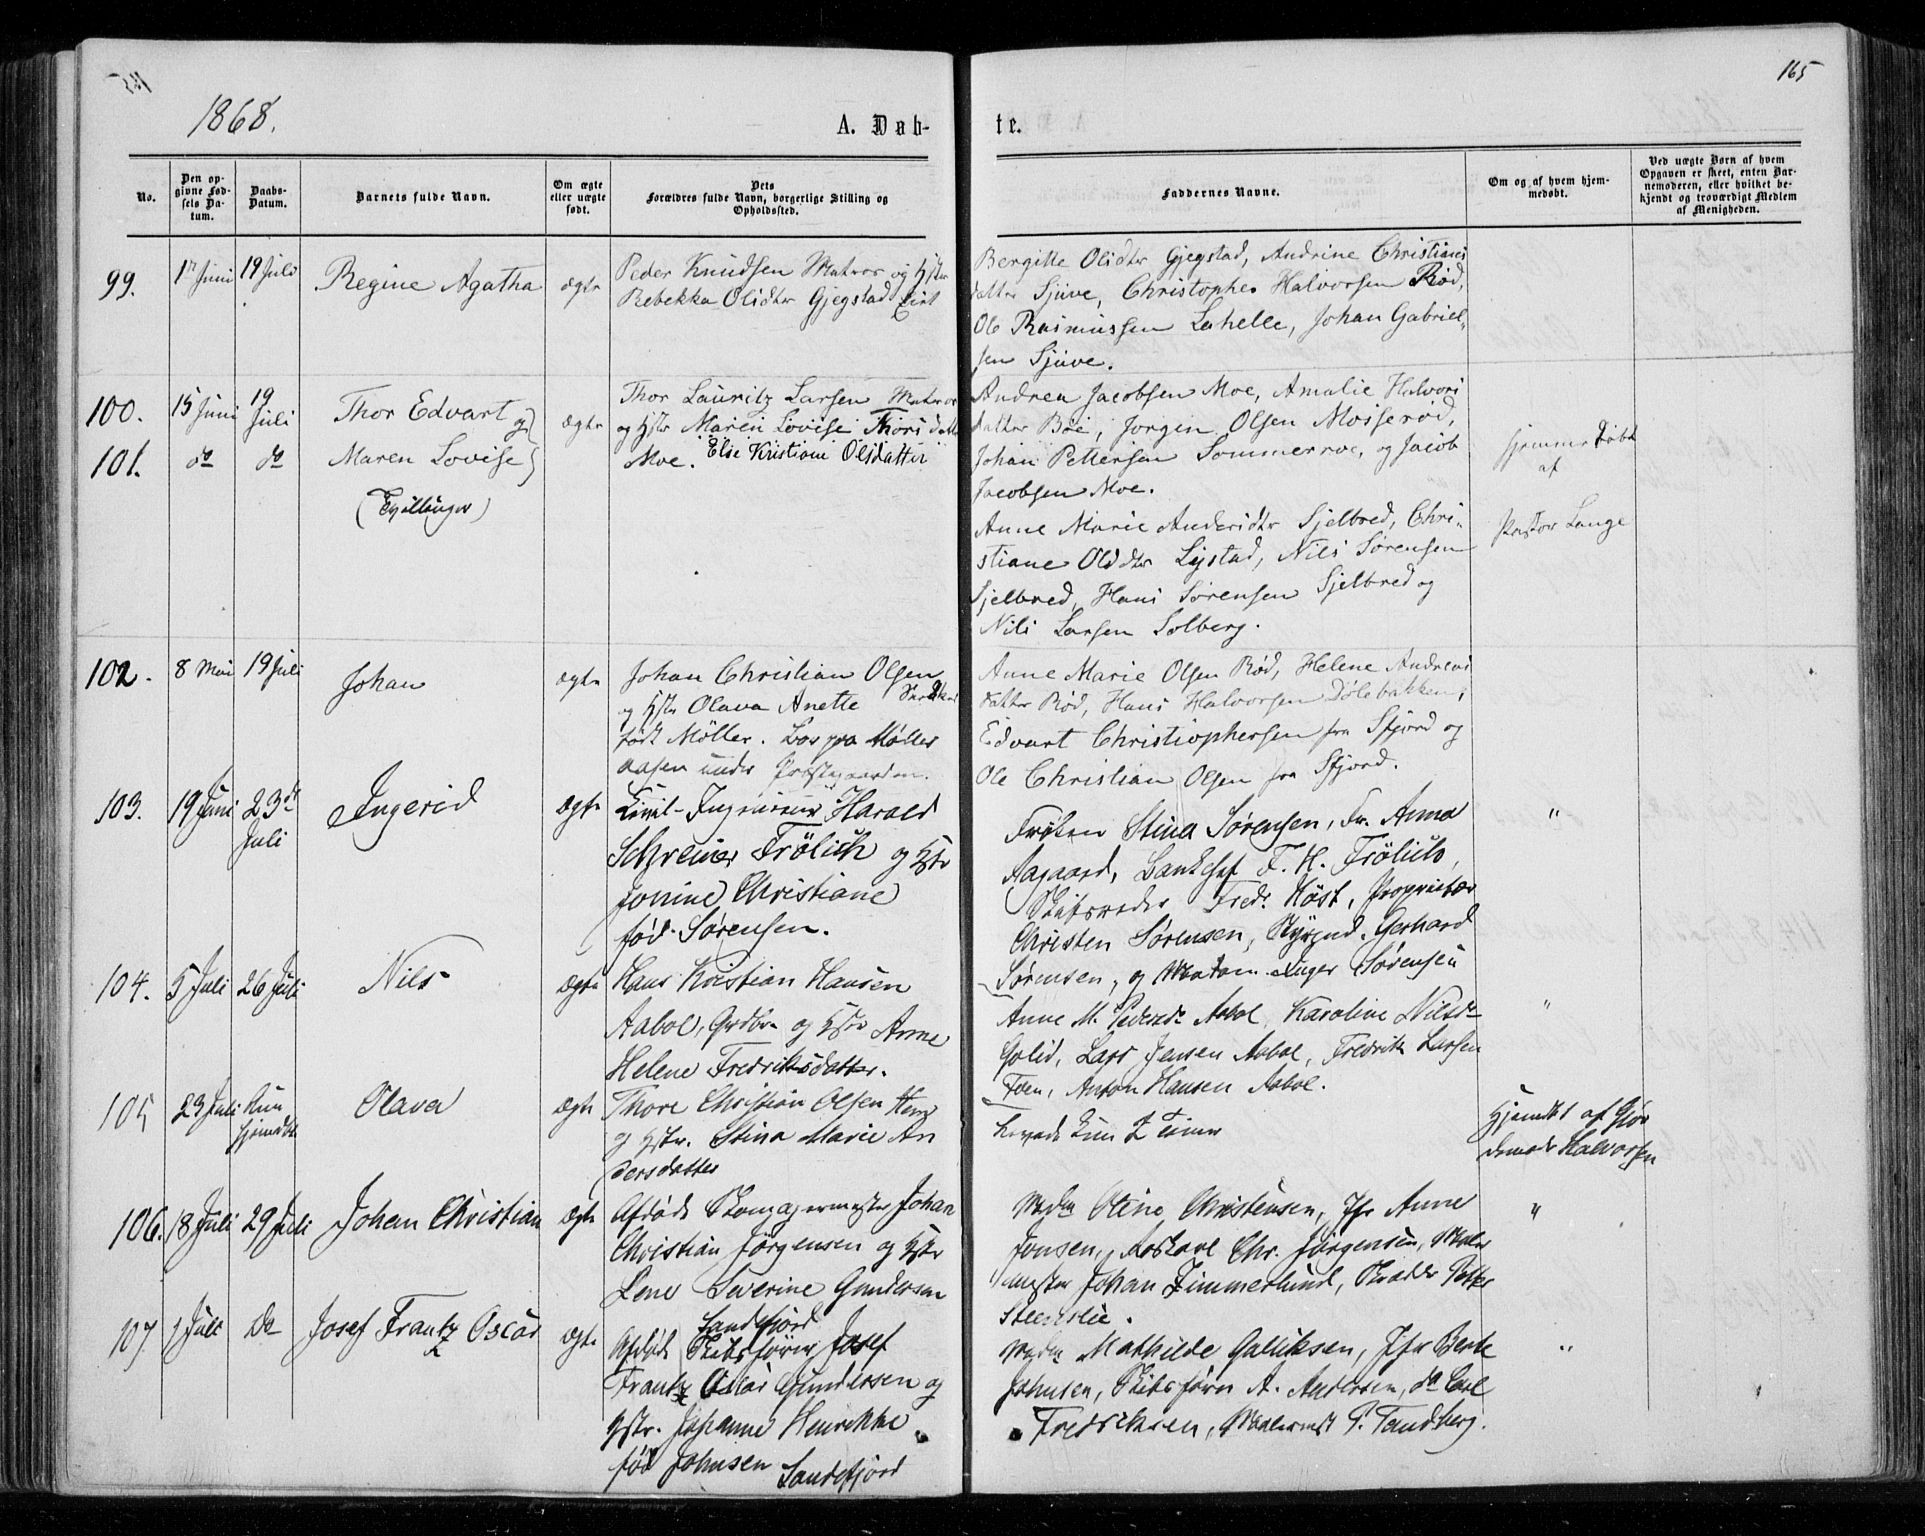 165
1868.
A. Døb-
te.
No.
Den op-
givne Fød-
sels Da-
tum.
Daabs-
Datum.
Barnets fulde Navn.
Om ægte
eller uægte
født.
Dets
Forældres fulde Navn, borgerlige Stilling og
Opholdssted.
Faddernes Navne.
Om og af hvem hjem-
medøbt.
Ved uægte Børn af hvem
Opgaven er skeet, enten Bar-
nemoderen, eller hvilket be-
kjendt og troværdigt Medlem
af Menigheden.
99.
Juni
19 Juli
Regine Agatha
ægte
Peder Knudsen Matros og Hstr
Rebekka Olsdtr Gjegstad
Bergitte Olsdtr Gjegstad, Andrine Christians
datter Sjuve, Christopher Halvorsen Rød,
Ole Rasmussen Lahelle, Johan Gabriel-
sen Sjuve.
100.
15 Juni
19
Juli
Thor Edvart og
ægte
Thor Lauritz Larsen Matros
og Hstr Maren Lovise Thorsdatter
Moe. Elie Kristiani Olsdatter
Andrea Jacobsen Moe, Amalie Halvors
datter Bøe, Jorgen Olsen Mosserød,
Johan Pettersen Sommerroe, og Jacob
Jacobsen Moe.
101.
do
do
Maren Lovise
(Tvillinger)
Anne Marie Andersdtr Sjelbred, Chri-
stiane Olsdtr Lystad, Nils Sørensen
Sjelbred, Hans Sørensen Sjelbred og
Nils Larsen Solberg.
Hjemme Døbt
af
Pastor Lange
102.
8 Mai
19 Juli
Johan
ægte
Johan Christian Olsen
Snedker
og Hstr Olava Anette
født Møller. Bor paa Møller
aasen under Præstegaarden.
Anne Marie Olsen Rød, Helene Andreas
datter Rød, Hans Halvorsen Dølebakken,
Edvart Christiophersen fra Sfjord og
Ole Christian Olsen fra Sfjord.
103.
19 Juni
23de
Juli
Ingerid
ægte
Civil-Ingenieur Harald
Schreiner Frölich og Hstr
Jonine Christiane
fød Sørensen.
Frøken Stina Sørensen, Fr. Anna
Aagaard, Bankchef F. H. Frölich,
Skibsreder Fredr. Høst, Proprietær
Christen Sørensen, Gerhard
Sørensen, og Madam Inger Sørensen
"
104.
5 Juli
26 Juli
Nils
ægte
Hans Kristian Hansen
Aabol, Grdbr og Hstr Anne
Helene Fredriksdatter.
Anne M. Pedersdr Aabol, Karoline Nilsdr
Golid, Lars Jensen Aabol, Fredrik Larsen
Foen, Anton Hansen Aabol.
"
105
23 Juli
Kun
hjemdøbt
Olava
ægte
Thore Christian Olsen
og Hstr. Stina Marie An
dersdatter
Levede kun 2 Timer
Hjemdbt af Gjor
demoder Halvorsen
106.
18 Juli
29 Juli
Johan Christian
ægte
Afdøde Skomagermester Johan
Christian Jørgensen og Hstr
Lene Severine Gundersen
Sandefjord
Madm Stine Christensen, Jfr Anne
Jonsen, Chr. Jørgensen, Maler
mester Johan Zimmerlund, Skrædder Petter
Steenslie.
"
107.
1 Juli
Do
Josef Frantz Oscar
ægte
Afdøde Skibsfører Josef
Frantz Oscar Gundersen og
Hstr. Johanne Henrikke
fød Johnsen Sandefjord
Madm Mathilde Gulliksen, Jfr Berte
Johnsen, Skibsfører A. Andersen, do Carl
Fredriksen, Malermst P. Tandberg.
"